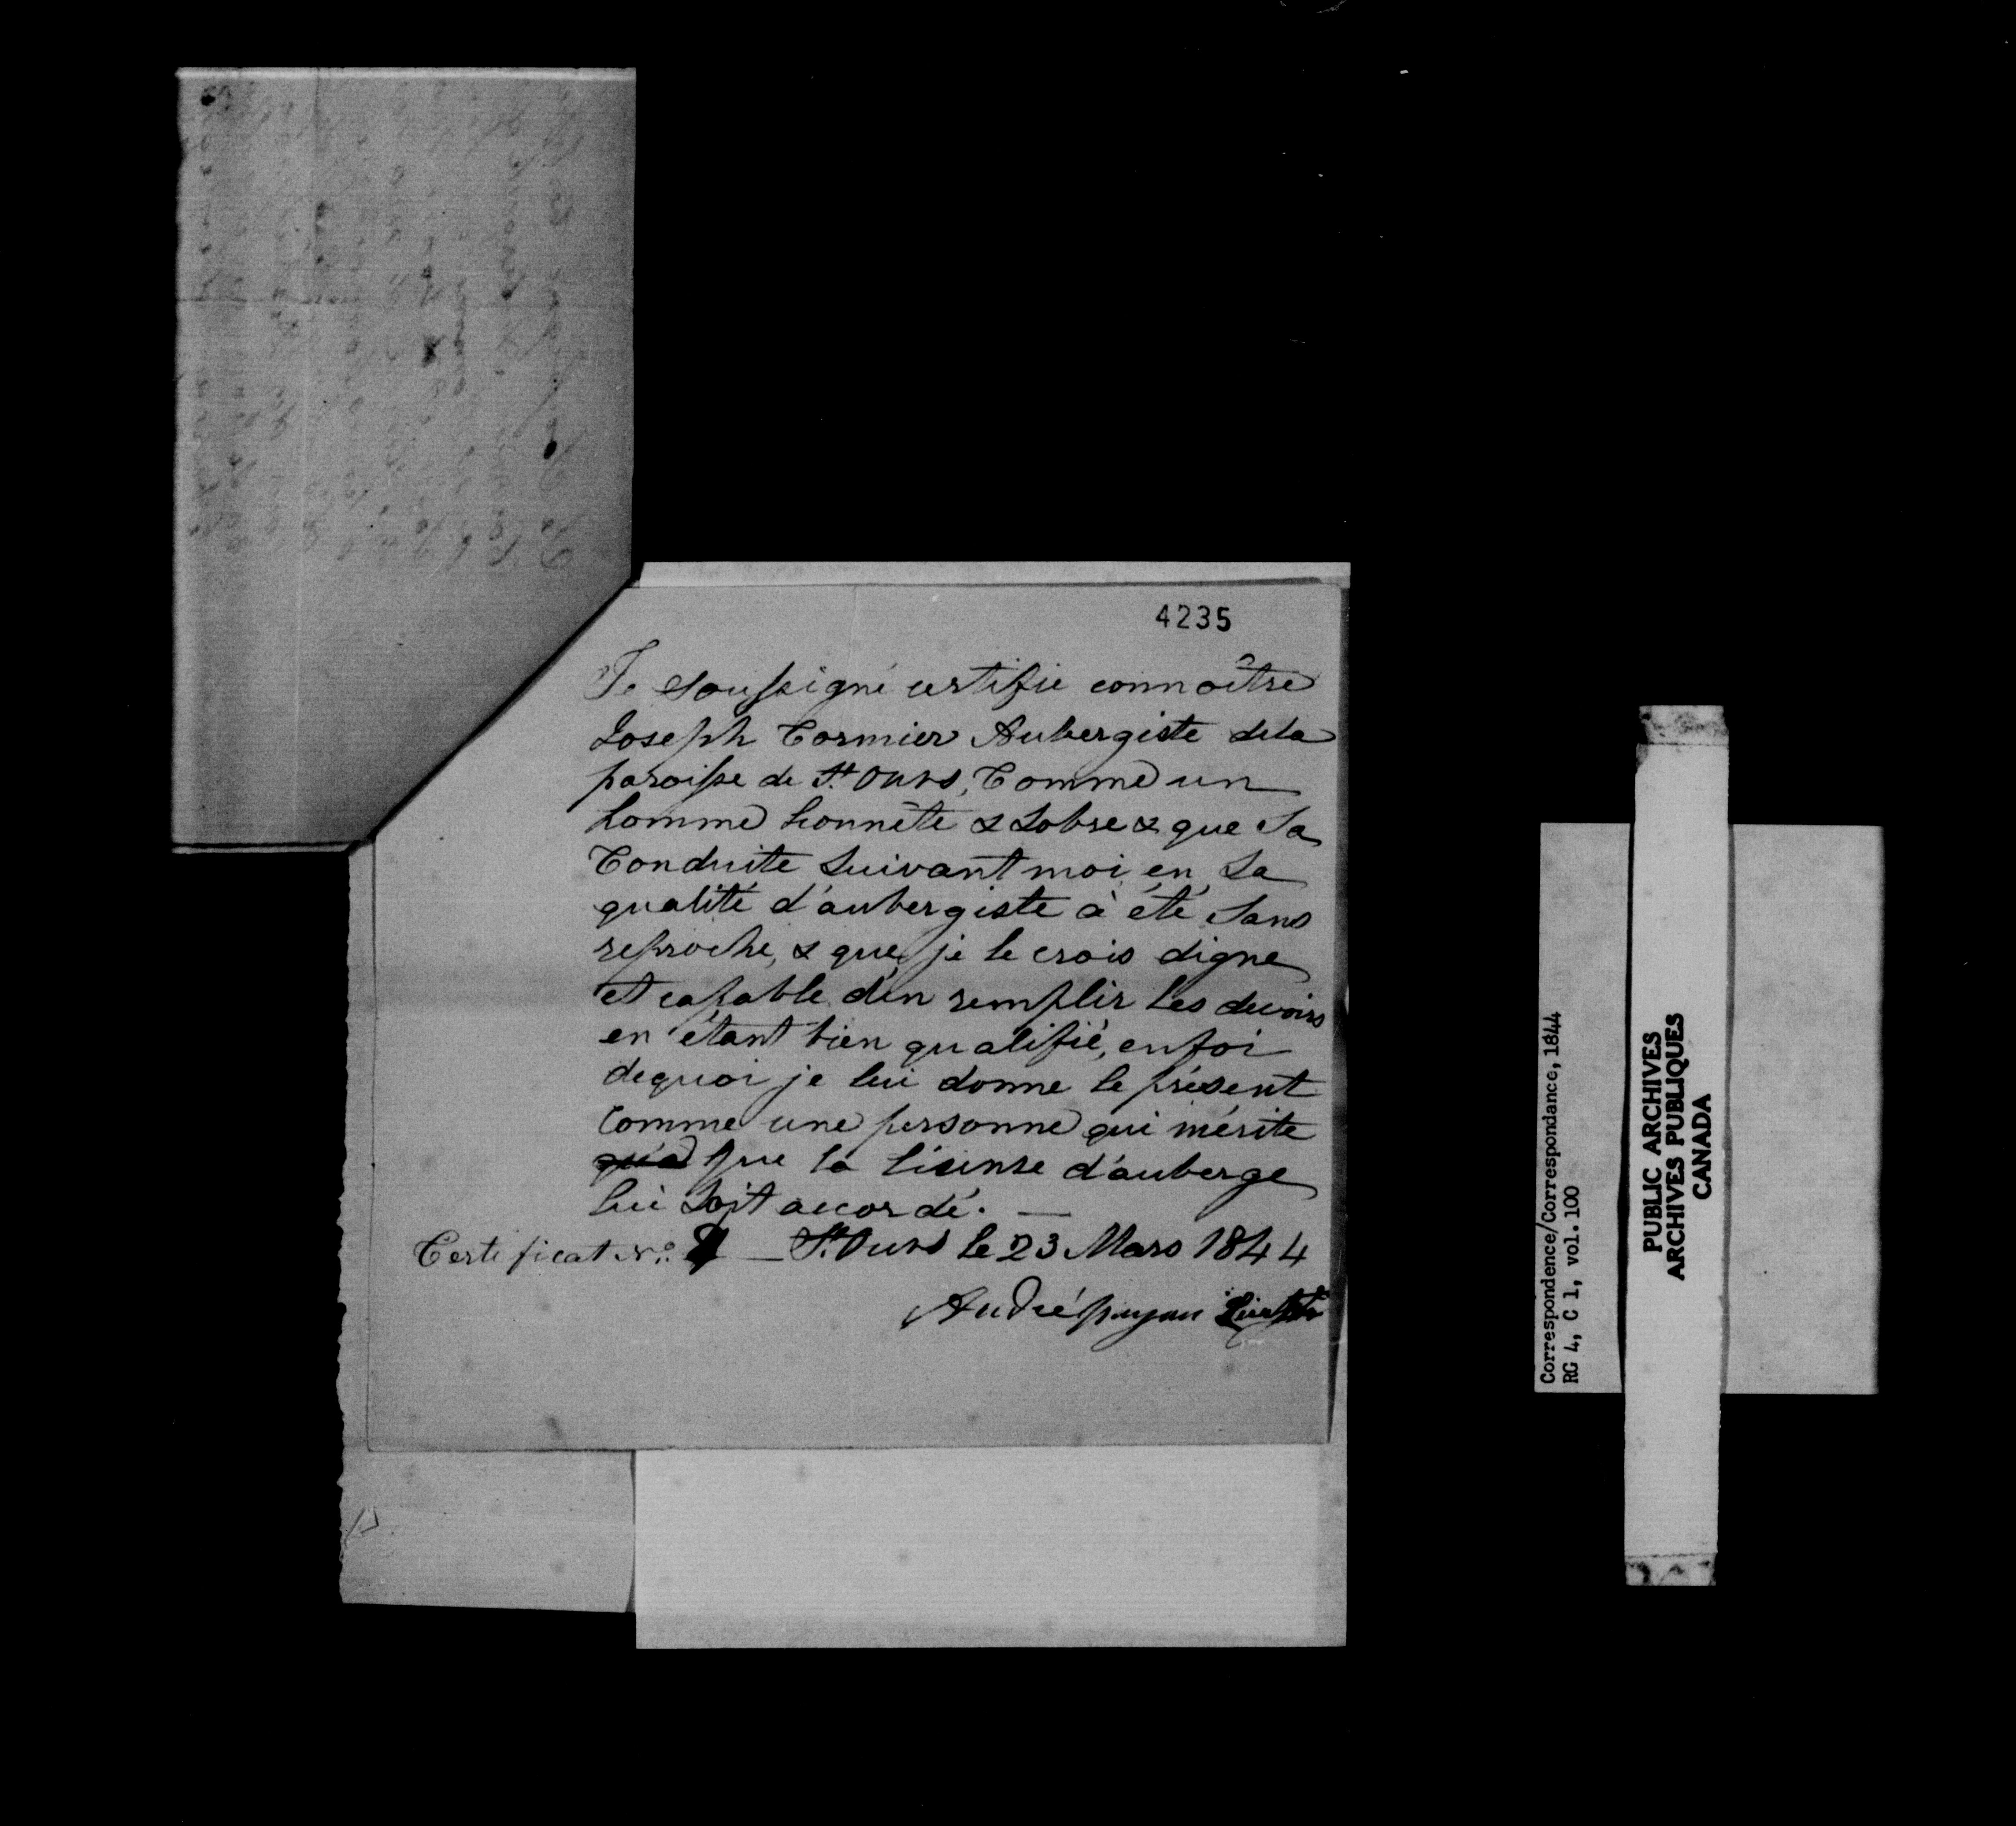 4235
Je soussigné certifie connoître
Joseph Cormier Aubergiste dela
paroisse de St. Ours, Comme un
homme honnête & sobre & que sa
Conduite suivant moi, en sa
qualité d'aubergiste à été sans
reproche, & que je le crois digne
et capable d'en remplir les devoirs
en étant bien qualifié, en foi
dequoi je lui donne le présent
Comme une personne qui mérite
que la lisense d'auberge
lui soit accordé. —
Certificat No. — St. Ours le 23 Mars 1844
André payan
Correspondence/Correspondance, 1844
RG 4, C 1, vol. 100
PUBLIC ARCHIVES
ARCHIVES PUBLIQUES
CANADA